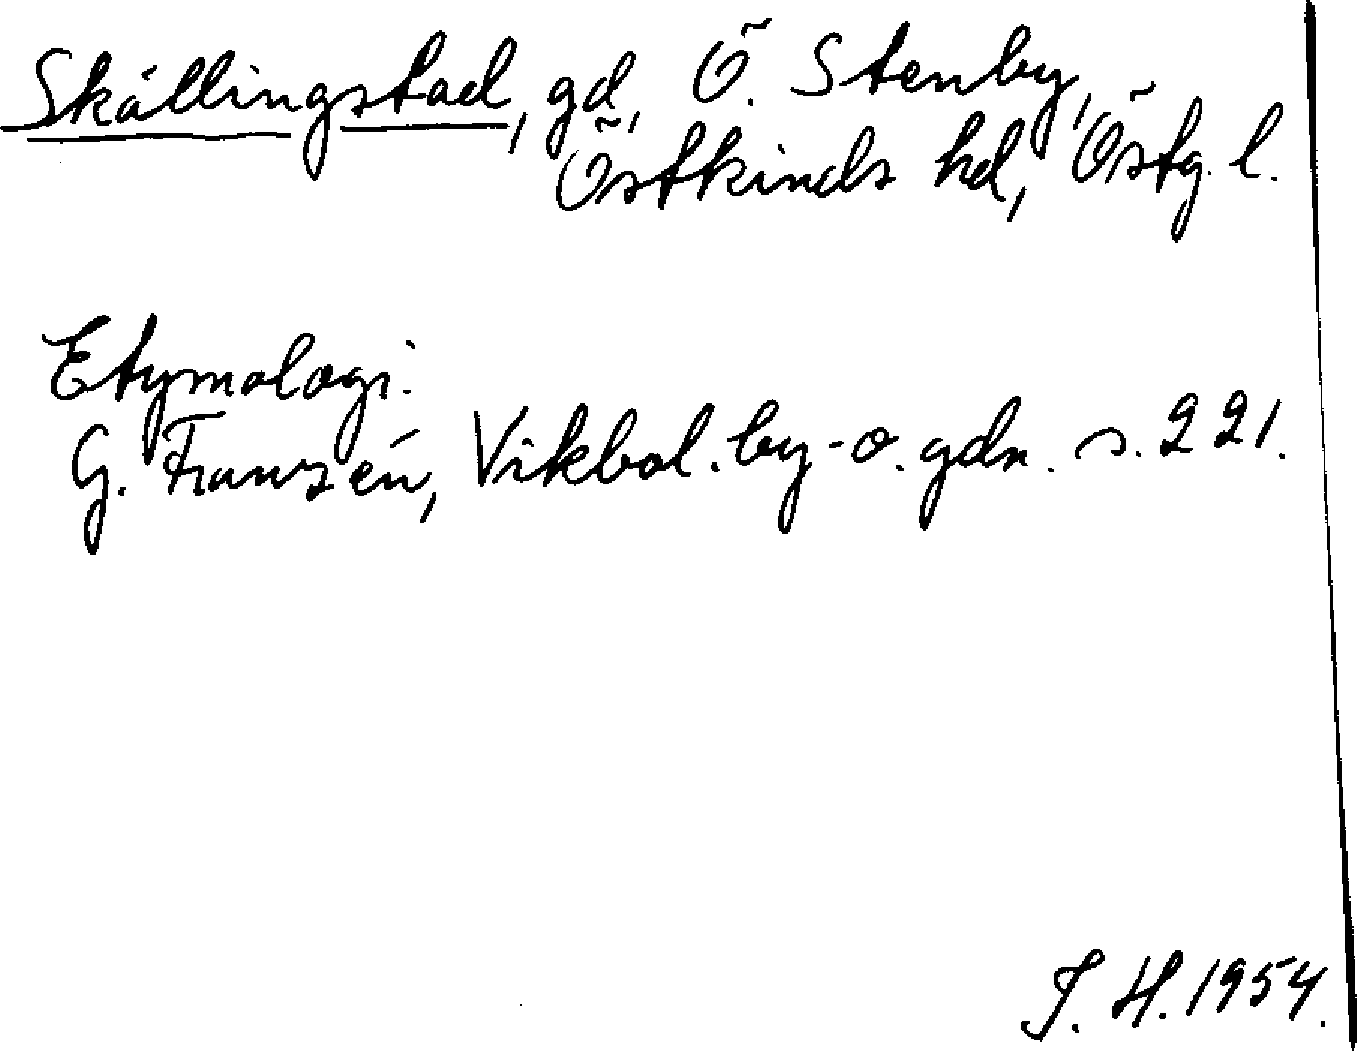 Skållingstad, gd, Ö. Stenby,
Östkinds hd, Östg. l.
Etymologi.
G. Franzén, Vikbol. by- o. gdn. s. 221.
J. H. 1954.